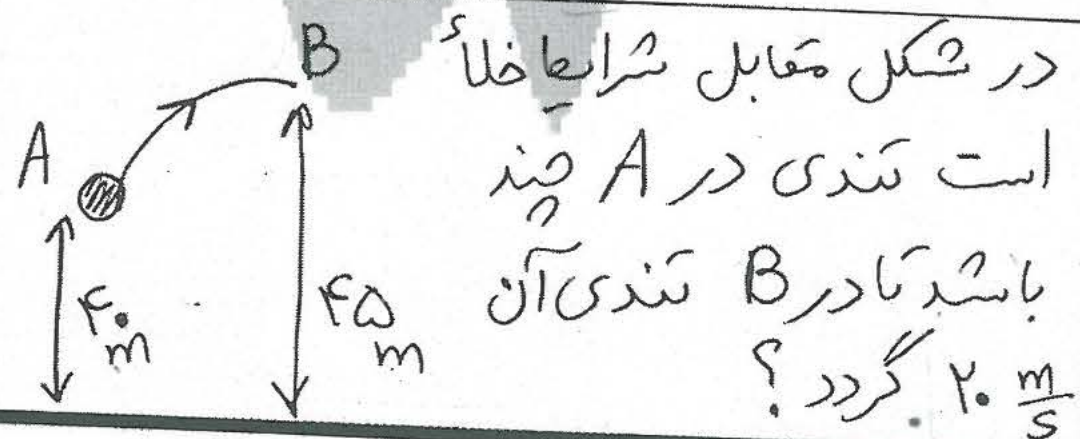 در شکل مقابل شرایط خلأ
است تندی در A چند
باشد تا در B تندی آن
۲۰ m/s گردد ؟
A
B
۴۰ m
۴۵ m